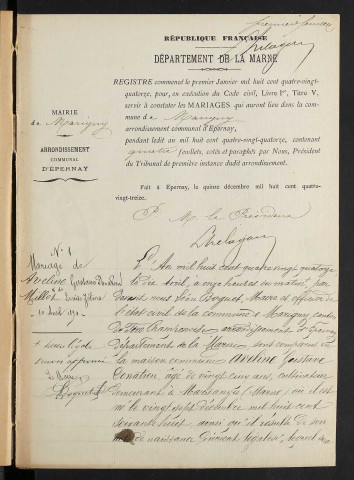 premier feuillet
RÉPUBLIQUE FRANÇAISE
DÉPARTEMENT DE LA MARNE
REGISTRE commencé le premier Janvier mil huit cent quatre-vingt-
quatorze, pour, en exécution du Code civil, Livre Ier, Titre V,
servir à constater les MARIAGES qui auront lieu dans la com-
mune de Marigny
arrondissement communal d'Épernay,
pendant ledit an mil huit cent quatre-vingt-quatorze, contenant
quatre feuillets, cotés et paraphés par Nous, Président
du Tribunal de première instance dudit arrondissement.
Fait à Epernay, le quinze décembre mil huit cent quatre-
vingt-treize.
P. M. le Président
MAIRIE
de Marigny
ARRONDISSEMENT
COMMUNAL
D'ÉPERNAY
No 1
Mariage de
Aveline Gustave Donatien
et de
Millot
10 Avril
L'An mil huit cent quatre vingt quatorze
le dix Avril, à onze heures du matin, par
devant nous Maire et officier de
l'état civil de la commune de Marigny, canton
de arrondissement d'Epernay
département de la Marne, sont comparus en
la maison commune Aveline Gustave
Donatien, âgé de vingt cinq ans, cultivateur
demeurant à (Marne) où il est
né le vingt sept décembre mil huit cent
soixante huit, ainsi qu'il résulte de son
acte de naissance